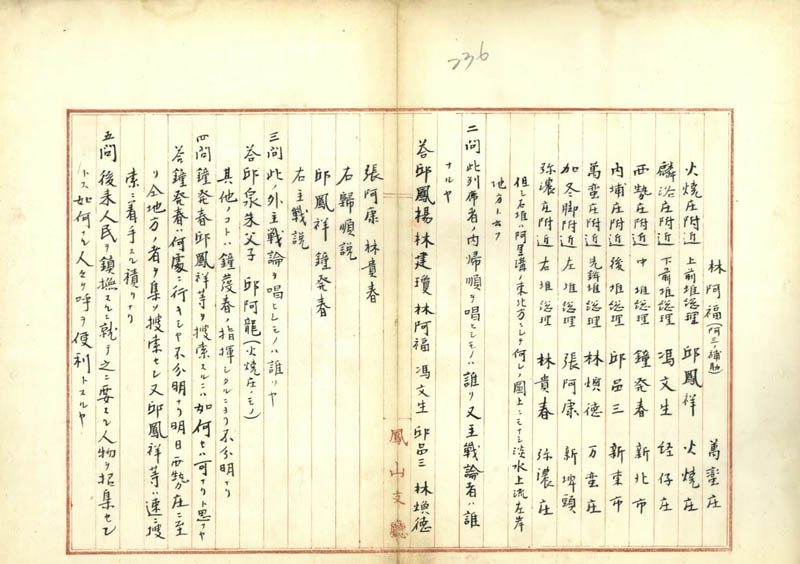 236
林阿福(何三ノ補助) 萬蛮庄
火燒庄附近 上前堆総理 邱鳳祥 火燒庄
麟洛庄附近 下前堆総理 馮文生 経仔庄
西勢庄附近 中堆総理 鐘発春 新北市
内埔庄附近 後堆総理 邱品三 新東市
萬蛮庄附近 先鋒堆総理 林煥德 万蛮庄
加冬脚附近 左堆総理 張阿康 新埤頭
弥濃庄附近 右堆総理 林貴春 弥濃庄
但シ右堆ハ阿里溝ノ東北方ニシテ何レノ圖上ニモナシ淡水上流左岸
地方ト云フ
二問 此列席者ノ内帰順ヲ唱ヒシモノハ誰リ又主戦論者ハ誰
ナルヤ
答 邱鳳揚 林建瓊 林阿福 馮文生 邱品三 林煥德
鳳山支廳
張阿康 林貴春
右歸順説
邱鳳祥 鐘発春
右主戦説
三問 此ノ外主戦論ヲ唱ヒシモノハ誰リヤ
答 邱泉朱父子 邱阿龍(火燒庄ニモノ)
其他ノコトハ鐘発春ノ指揮シタルニヨリ不分明ナリ
四問 鐘発春邱鳳祥等ヲ捜索スルニハ如何セハ可ナリト思フヤ
答 鐘発春ハ何處ニ行キシヤ不分明ナリ明日西勢庄ニ至
リ全地方ノ者ヲ集メ捜索セン又邱鳳祥等ハ速ニ捜
索ニ着手スル積リナリ
五問 後来人民ヲ鎮撫スルニ就テ之ニ要スル人物ヲ招集セン
トス如何ナル人々ヲ呼ヲ便利トスルヤ